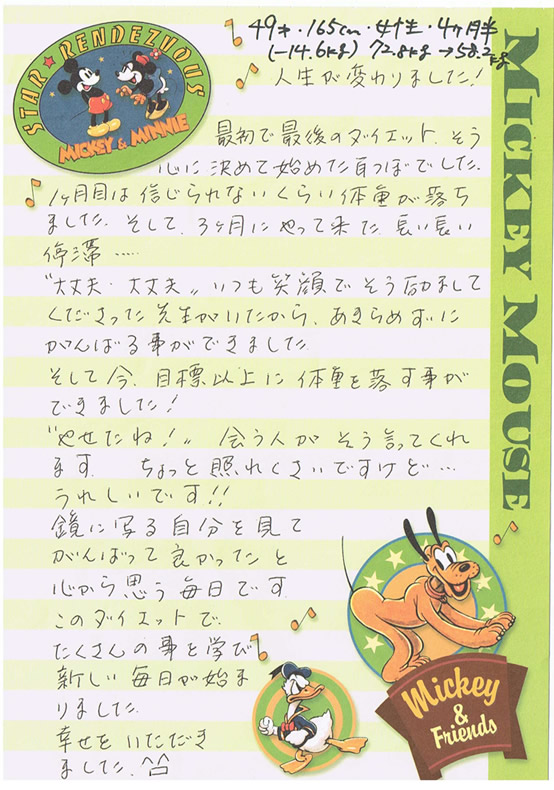 49才・165cm・女性・4ヶ月半
(－14.6kg) 72.8kg→58.2kg
人生が変わりました!
STAR★RENDEZVOUS
MICKEY & MINNIE
最初で最後のダイエット、そう
心に決めて始めた耳つぼでした。
1ヶ月目は信じられないくらい体重が落ち
ました。そして、3ヶ月にやって来た長い長い
停滞……
"大丈夫・大丈夫〃いつも笑顔でそう励まして
くださった先生がいたから、あきらめずに
がんばる事ができました。
そして今、目標以上に体重を落す事が
できました!
"やせたね!〃 会う人がそう言ってくれ
ます。 ちょっと照れくさいですけど…
うれしいです!!
鏡に写る自分を見て
がんばって良かったと
心から思う毎日です。
このダイエットで、
たくさんの事を学び
新しい毎日が始ま
りました。
幸せをいただき
ました。^△^
MICKEY MOUSE
Mickey
&
Friends